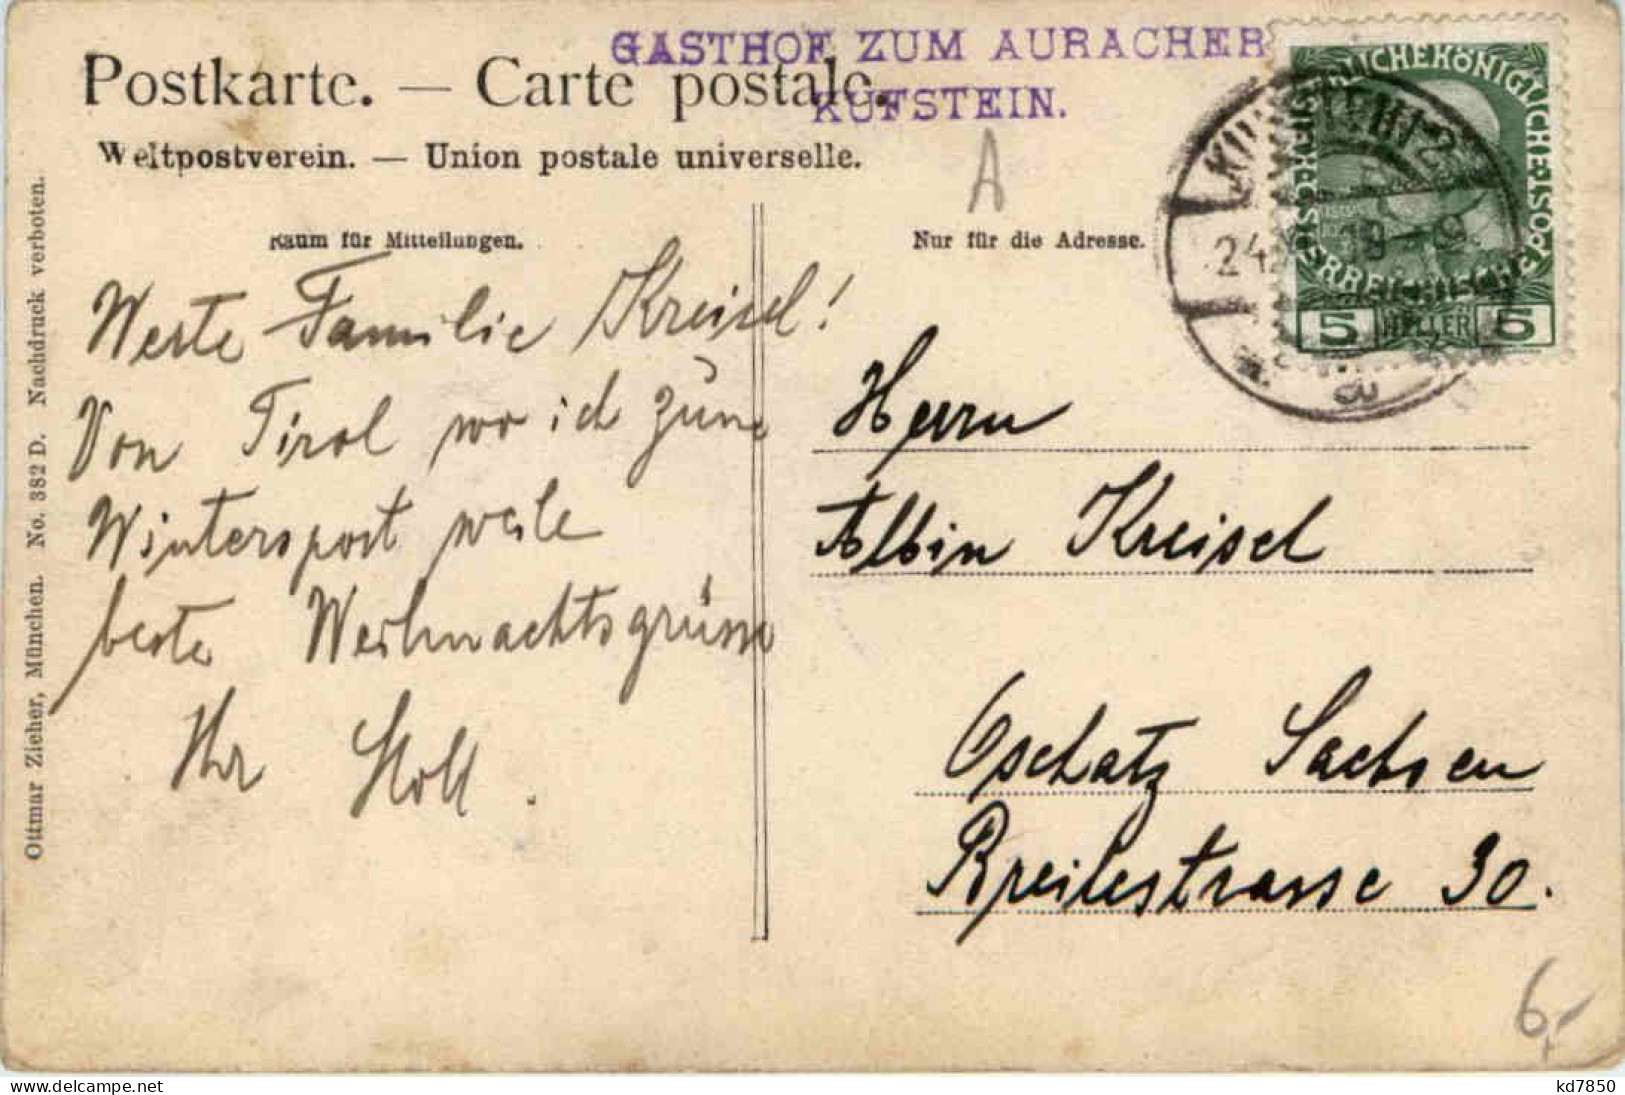 GASTHOF ZUM AURACHER
KUFSTEIN.
Postkarte. — Carte postale.
Weltpostverein. — Union postale universelle.
A
Raum für Mitteilungen.
Nur für die Adresse.
Werte Familie Kreisel!
Von Tirol wo ich zum
Wintersport weile
beste Weihnachtsgrüsse
Ihr Stoll.
Herrn
Albin Kreisel
Oschatz Sachsen
Breitestrasse 30.
Ottmar Zieher, München. No. 382 D. Nachdruck verboten.
5 HELLER 5
24
6,-
kd7850